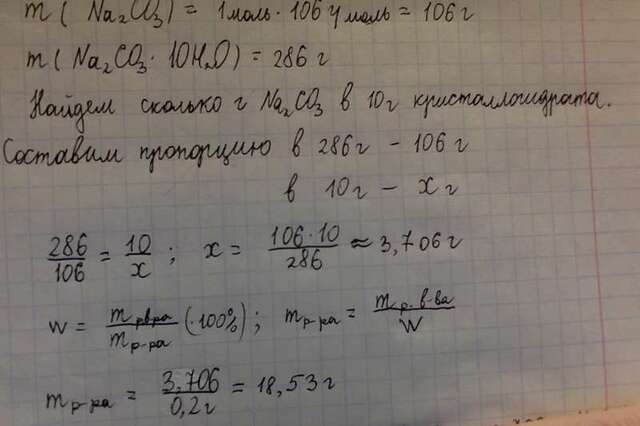 m ( Na₂CO₃ ) = 1 моль · 106 г/моль = 106 г
m ( Na₂CO₃ · 10H₂O ) = 286 г
Найдем сколько г Na₂CO₃ в 10г кристаллогидрата.
Составим пропорцию в 286 г - 106 г
в 10 г - x г
286/106 = 10/x ; x = 106·10/286 ≈ 3,706 г
W = m р.в.ра/m р-ра (·100%) ; m р-ра = m р. в-ва/W
m р-ра = 3,706/0,2г = 18,53 г